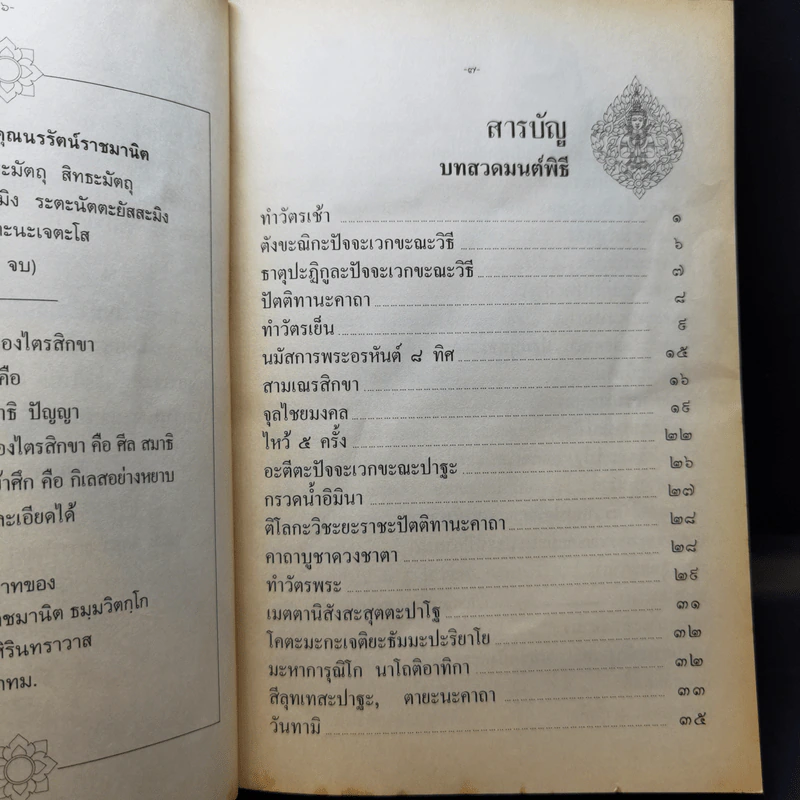 ๖-
คุณนรรัตน์ราชมานิต
ะมัตถุ สิทธะมัตถุ
มิง ระตะนัตตะยัสสะมิง
ตะนะเจตะโส
จบ)
องไตรสิกขา
คือ
าธิ ปัญญา
องไตรสิกขา คือ ศีล สมาธิ
ข้าศึก คือ กิเลสอย่างหยาบ
ละเอียดได้
าทของ
าชมานิต ธมฺมวิตกฺโก
ศิรินทราวาส
กทม.
-๗-
สารบัญ
บทสวดมนต์พิธี
ทำวัตรเช้า ๑
ตังขะณิกะปัจจะเวกขะณะวิธี ๖
ธาตุปะฏิกูละปัจจะเวกขะณะวิธี ๗
ปัตติทานะคาถา ๘
ทำวัตรเย็น ๙
นมัสการพระอรหันต์ ๘ ทิศ ๑๕
สามเณรสิกขา ๑๖
จุลไชยมงคล ๑๙
ไหว้ ๕ ครั้ง ๒๒
อะตีตะปัจจะเวกขะณะปาฐะ ๒๖
กรวดน้ำอิมินา ๒๗
ติโลกะวิชะยะราชะปัตติทานะคาถา ๒๘
คาถาบูชาดวงชาตา ๒๘
ทำวัตรพระ ๒๙
เมตตานิสังสะสุตตะปาโฐ ๓๑
โคตะมะกะเจติยะธัมมะปะริยาโย ๓๒
มะหาการุณิโก นาโถติอาทิกา ๓๒
สีลุทเทสะปาฐะ, ตายะนะคาถา ๓๓
วันทามิ ๓๕